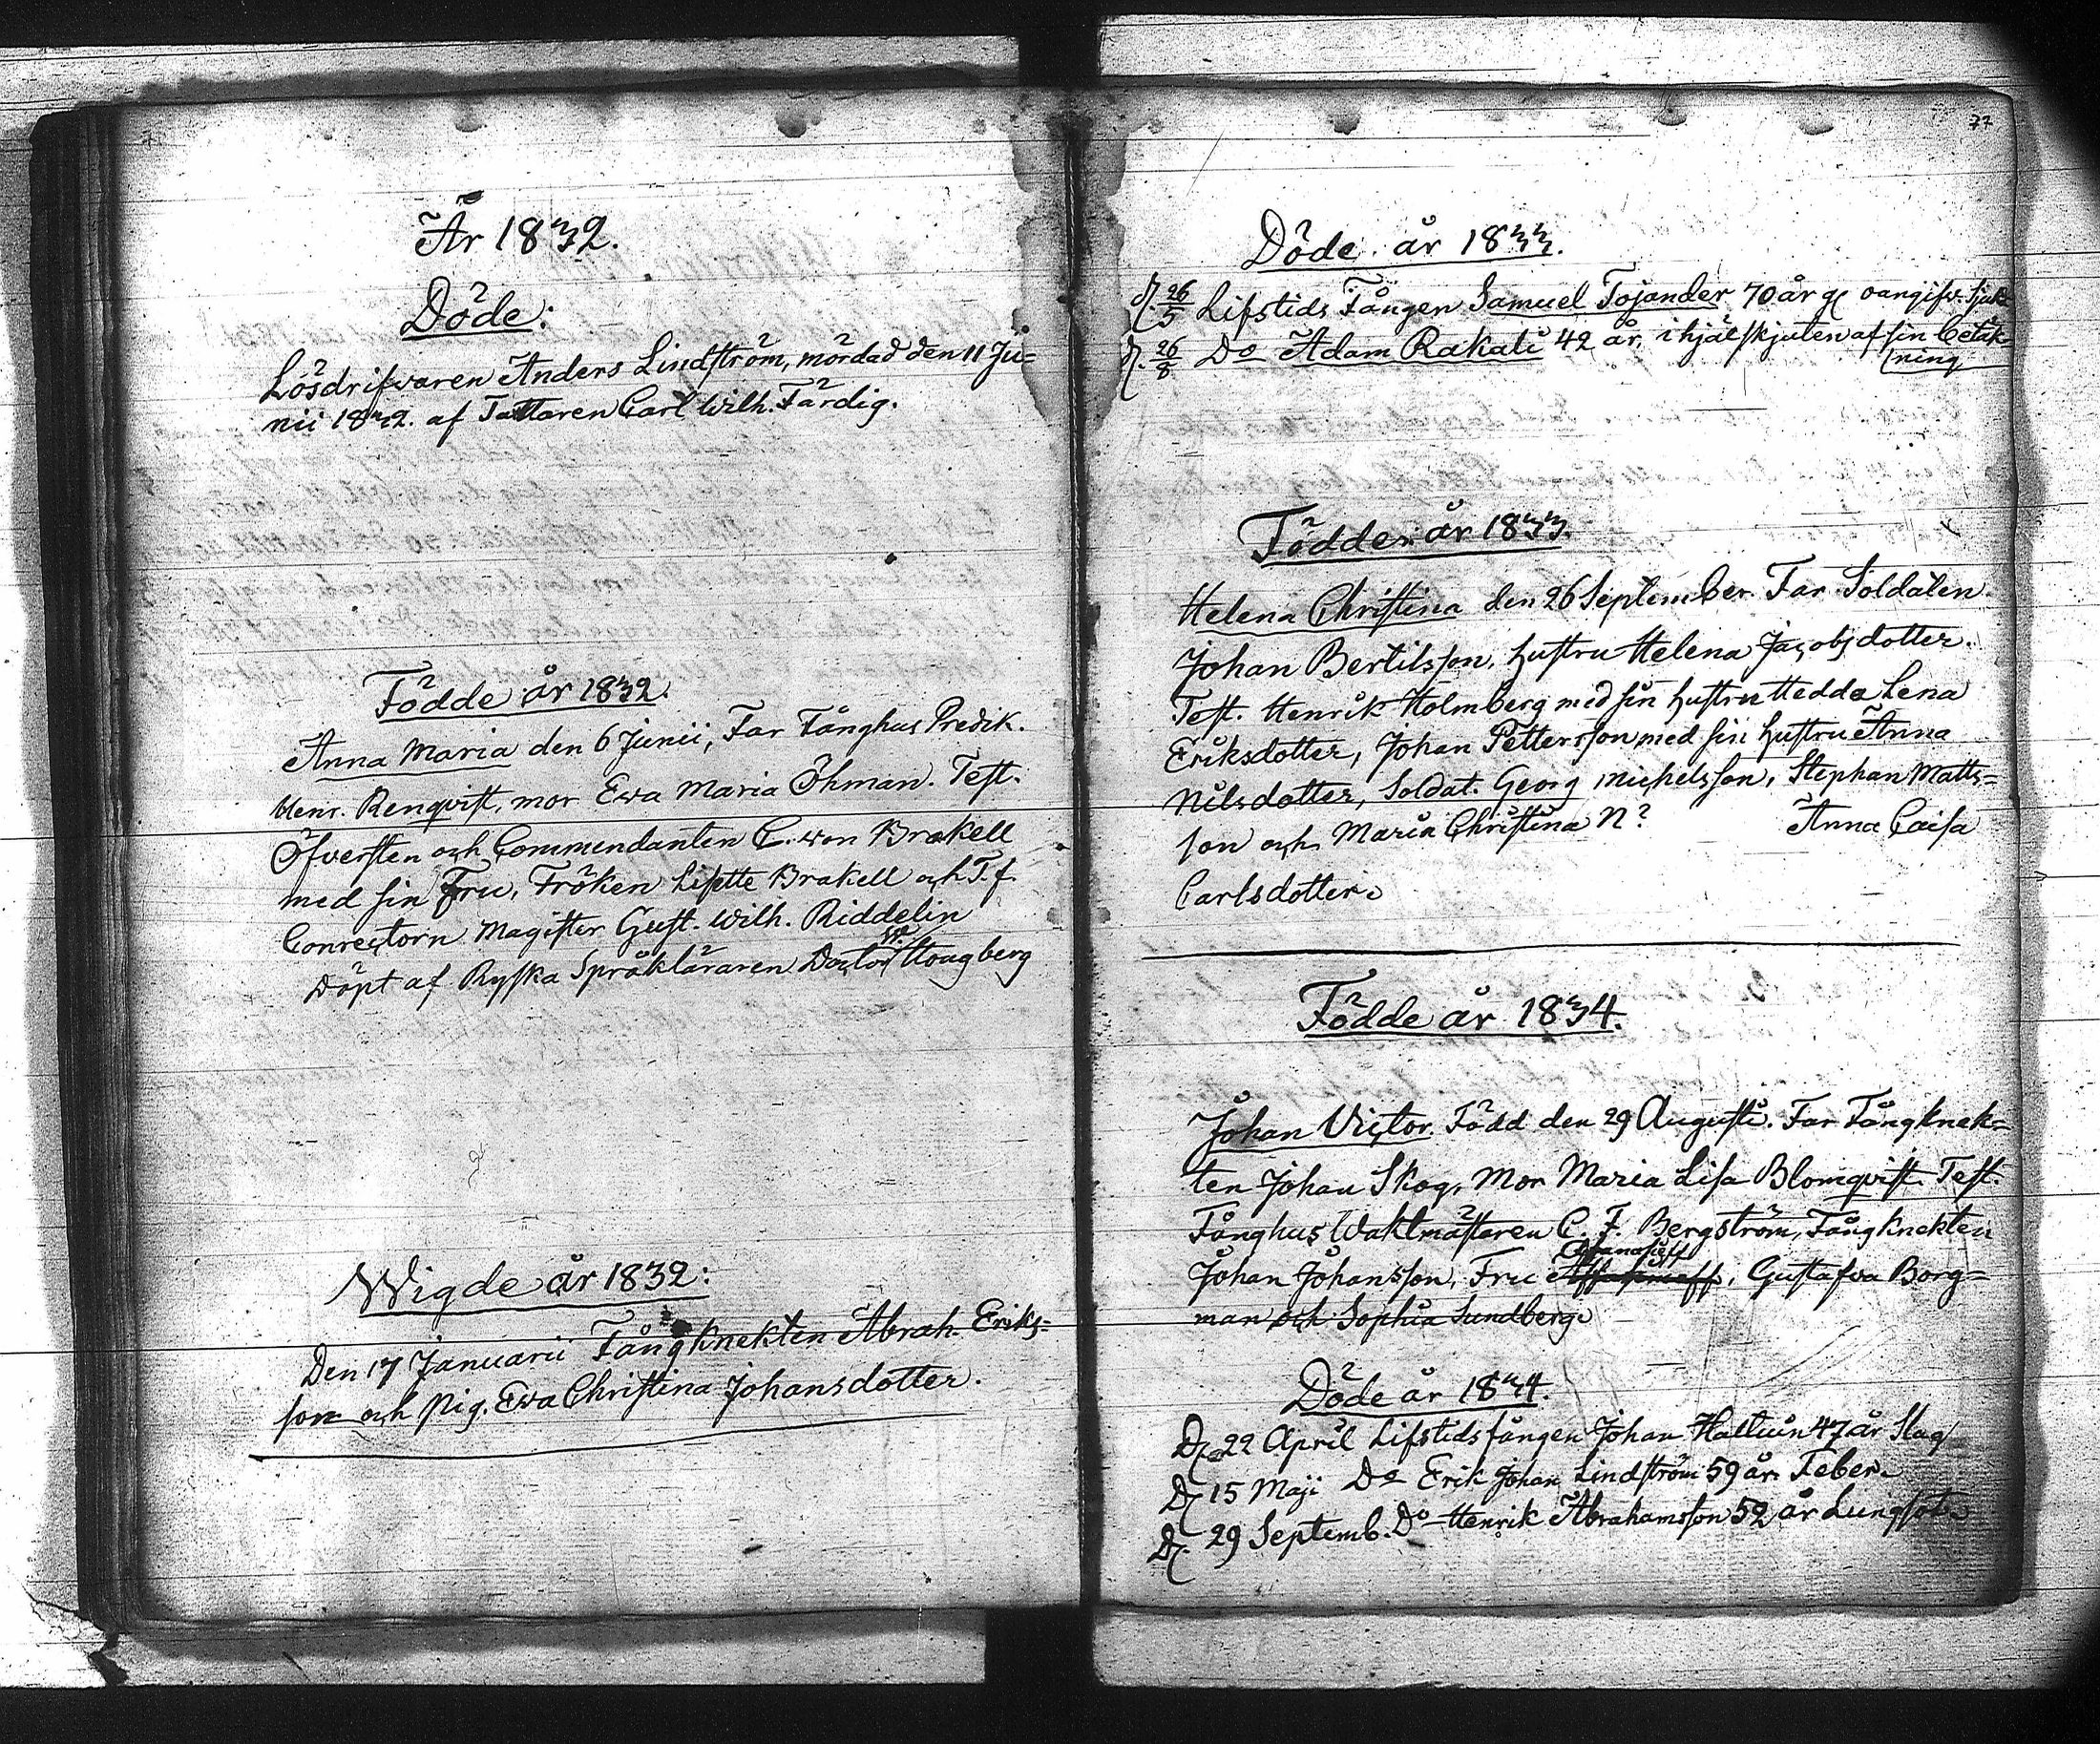 År 1832.
Döde:
Lösdrifvaren Anders Lindström, mördad den 11 Ju=
nii 1832. af Tattaren Carl Wilh. Färdig.
Födde år 1832.
Anna Maria den 6 Junii, Far Fånghus Predik.
Henr. Renqvist, mor Ewa Maria Öhman. Test.
Öfversten och Commendanten C. von Brakell
med sin Fru, Fröken Lisette Brakell och T.f.
Conrectorn Magister Gust. Wilh. Riddelin
Döpt af Ryska Språkläraren Hougberg
Wigde år 1832:
Den 17 Januarii Fångknekten Abrah. Eriks=
son och Pig. Ewa Christina Johansdotter.
77
Döde år 1833.
d. 26/5 Lifstids Fången Samuel Tojander 70 år g. oangifv. Sjuk.
d. 26/8 Do Adam Rakali 42 år, ihjälskjuten af sin betäk=
ning
Födde år 1833.
Helena Christina den 26 September. Far Soldaten
Johan Bertilsson, hustru Helena Jacobsdotter.
Test. Henrik Holmberg med sin hustru Hedda Lena
Eriksdotter, Johan Pettersson med sin hustru Anna
Nilsdotter, Soldat. Georg Michelsson, Stephan Matts=
son och Maria Christina N? Anna Caisa
Carlsdotter.
Födde år 1834.
Johan Victor. Född den 29 Augusti. Far Fångknek=
ten Johan Skog, Mor Maria Lisa Blomqvist. Test.
Fånghus Waktmästaren C. F. Bergström, Fångknekten
Afanasieff
Johan Johansson, Fru , Gustafva Borg=
man och Sophia Sundberg.
Döde år 1834.
D. 22 April Lifstidsfången Johan Hattuin 47 år Slag
D. 15 Maji Do Erik Johan Lindström 59 år. Feber.
D. 29 Septemb. Do Henrik Abrahamsson 52 år Lungsot.